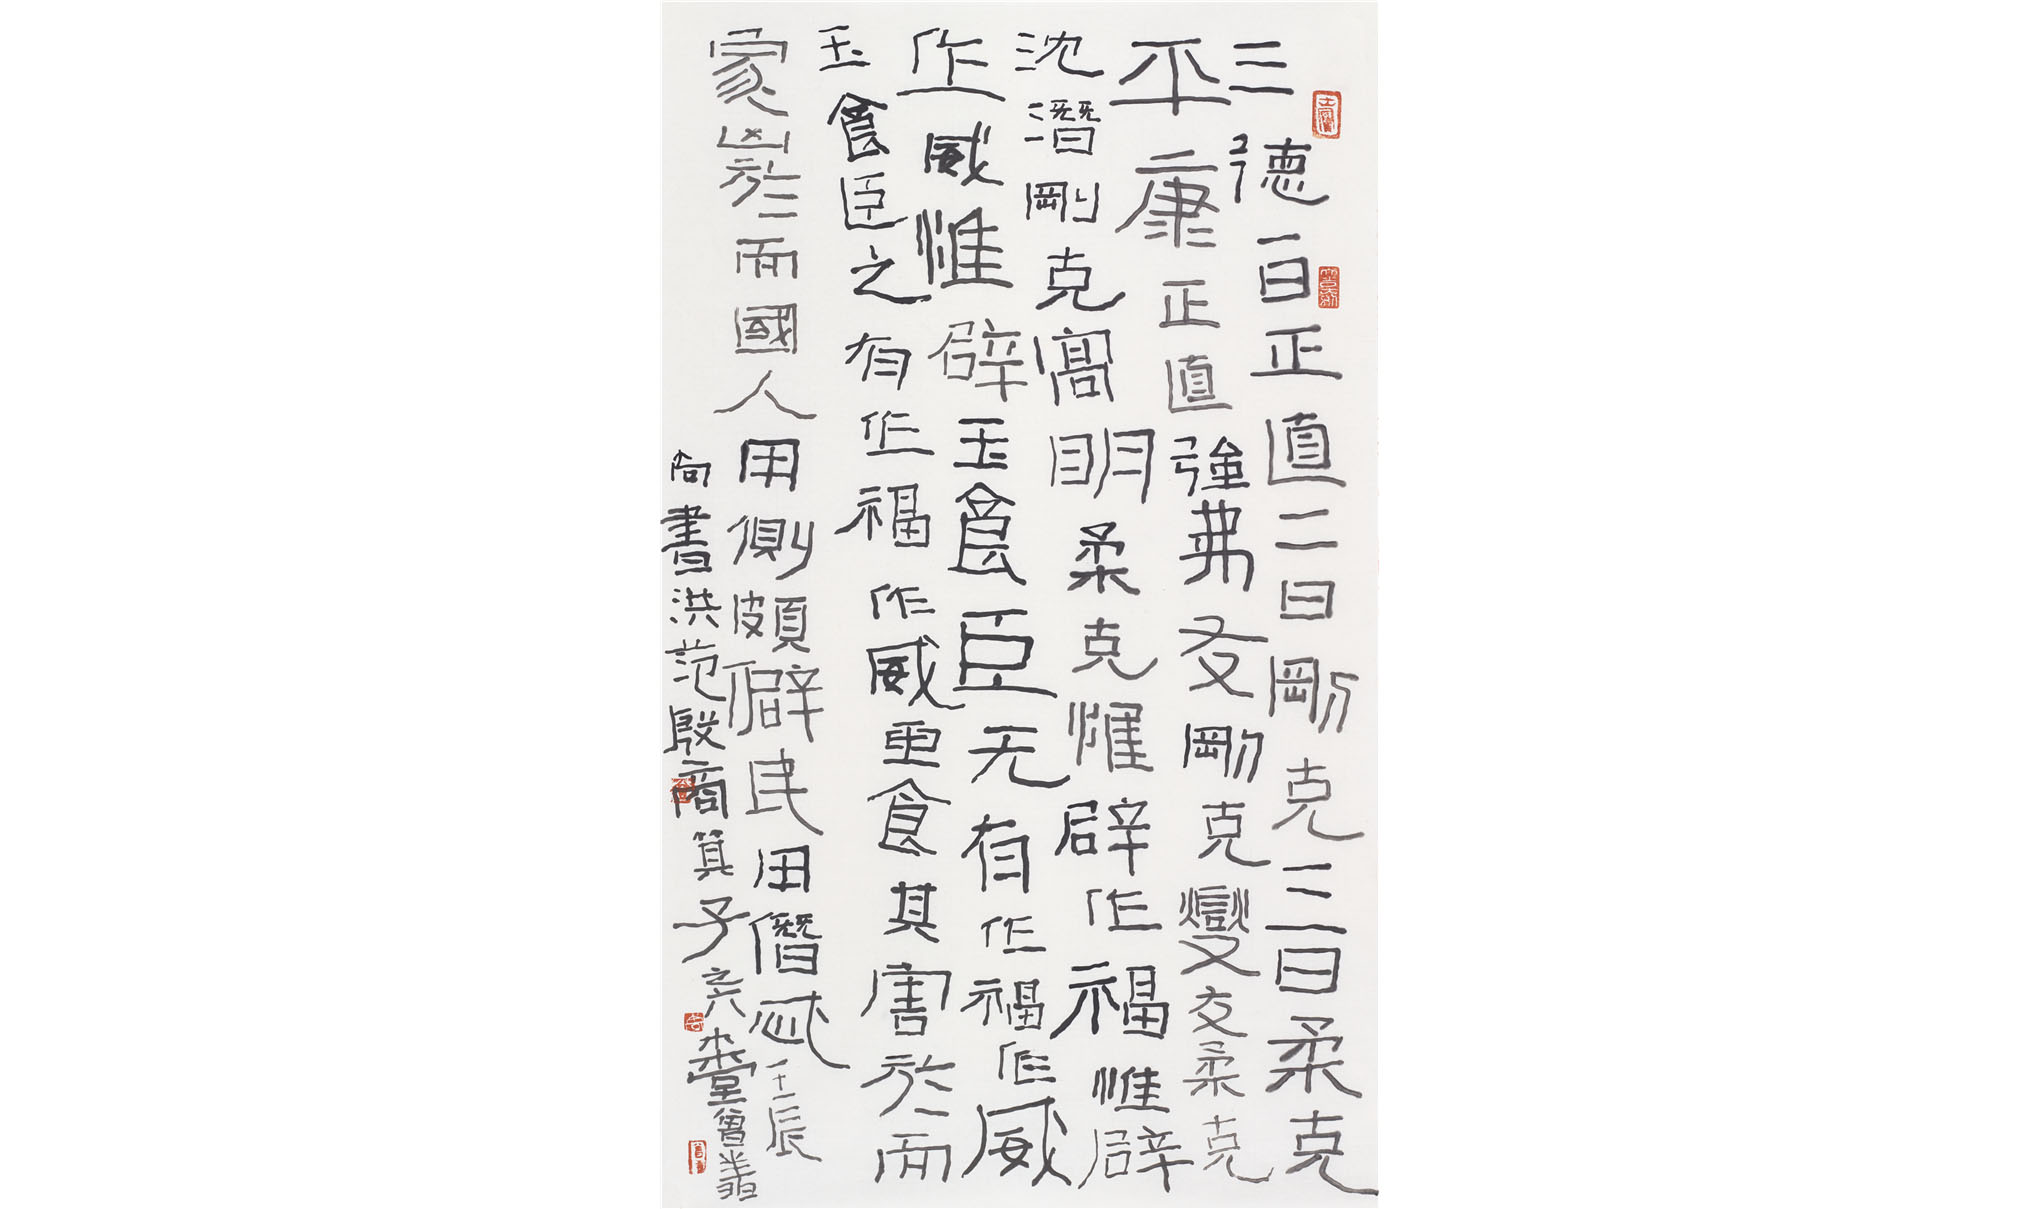 三德一曰正直二曰剛克三曰柔克
平康正直強弗友剛克燮友柔克
沈潛剛克高明柔克惟辟作福惟辟
作威惟辟玉食臣无有作福作威
玉食臣之有作福作威玉食其害於而
家凶於而國人用側頗僻民用僭忒壬辰
尚書洪范殷商箕子堂曾翔